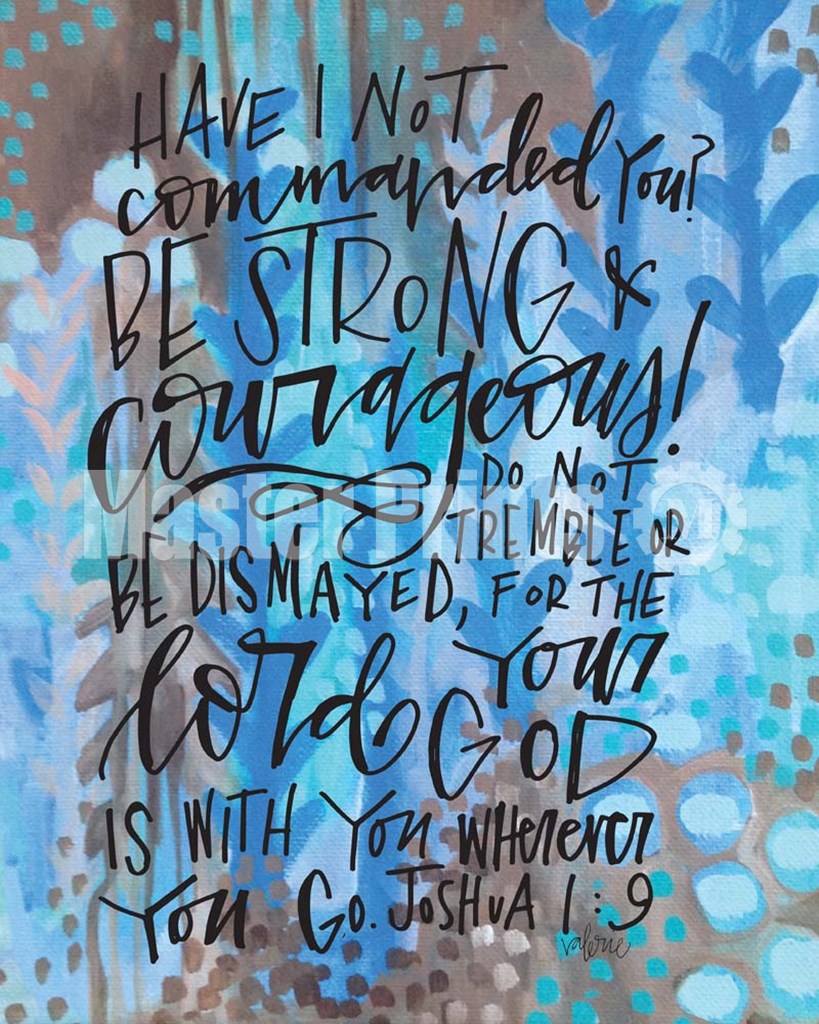 HAVE I NOT
commanded YOU?
BE STRONG &
courageous!
DO NOT
TREMBLE OR
BE DISMAYED, FOR THE
lord YOUR
GOD
IS WITH YOU WHEREVER
YOU GO. JOSHUA 1:9
valerie